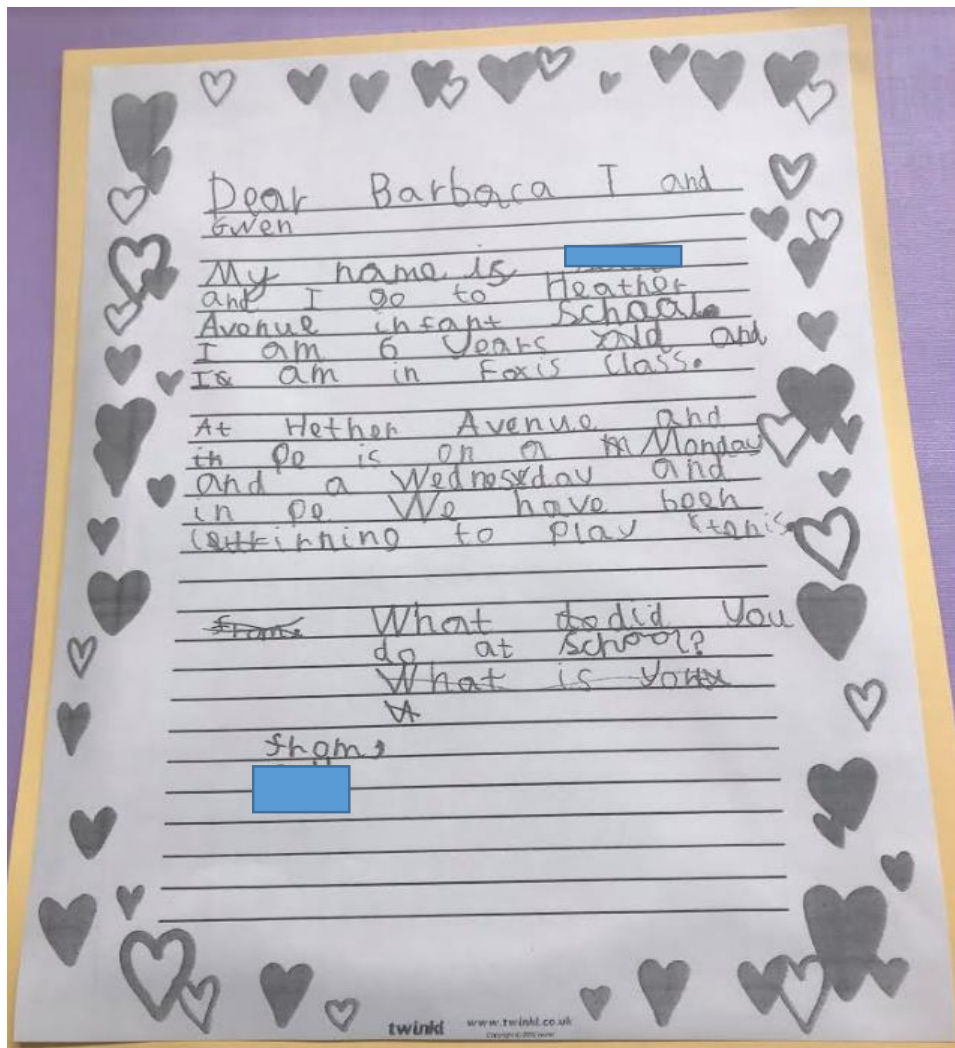 Dear Barbara T and
Gwen
My name is
and I go to Heather
Avenue infant School.
I am 6 Years old and
I am in Foxis Class.
At Hether Avenue and
pe is on a Monday
and a Wednesday and
in pe We have been
to play tenis
from What did you
do at School?
What is your
from,
twinkl www.twinkl.co.uk